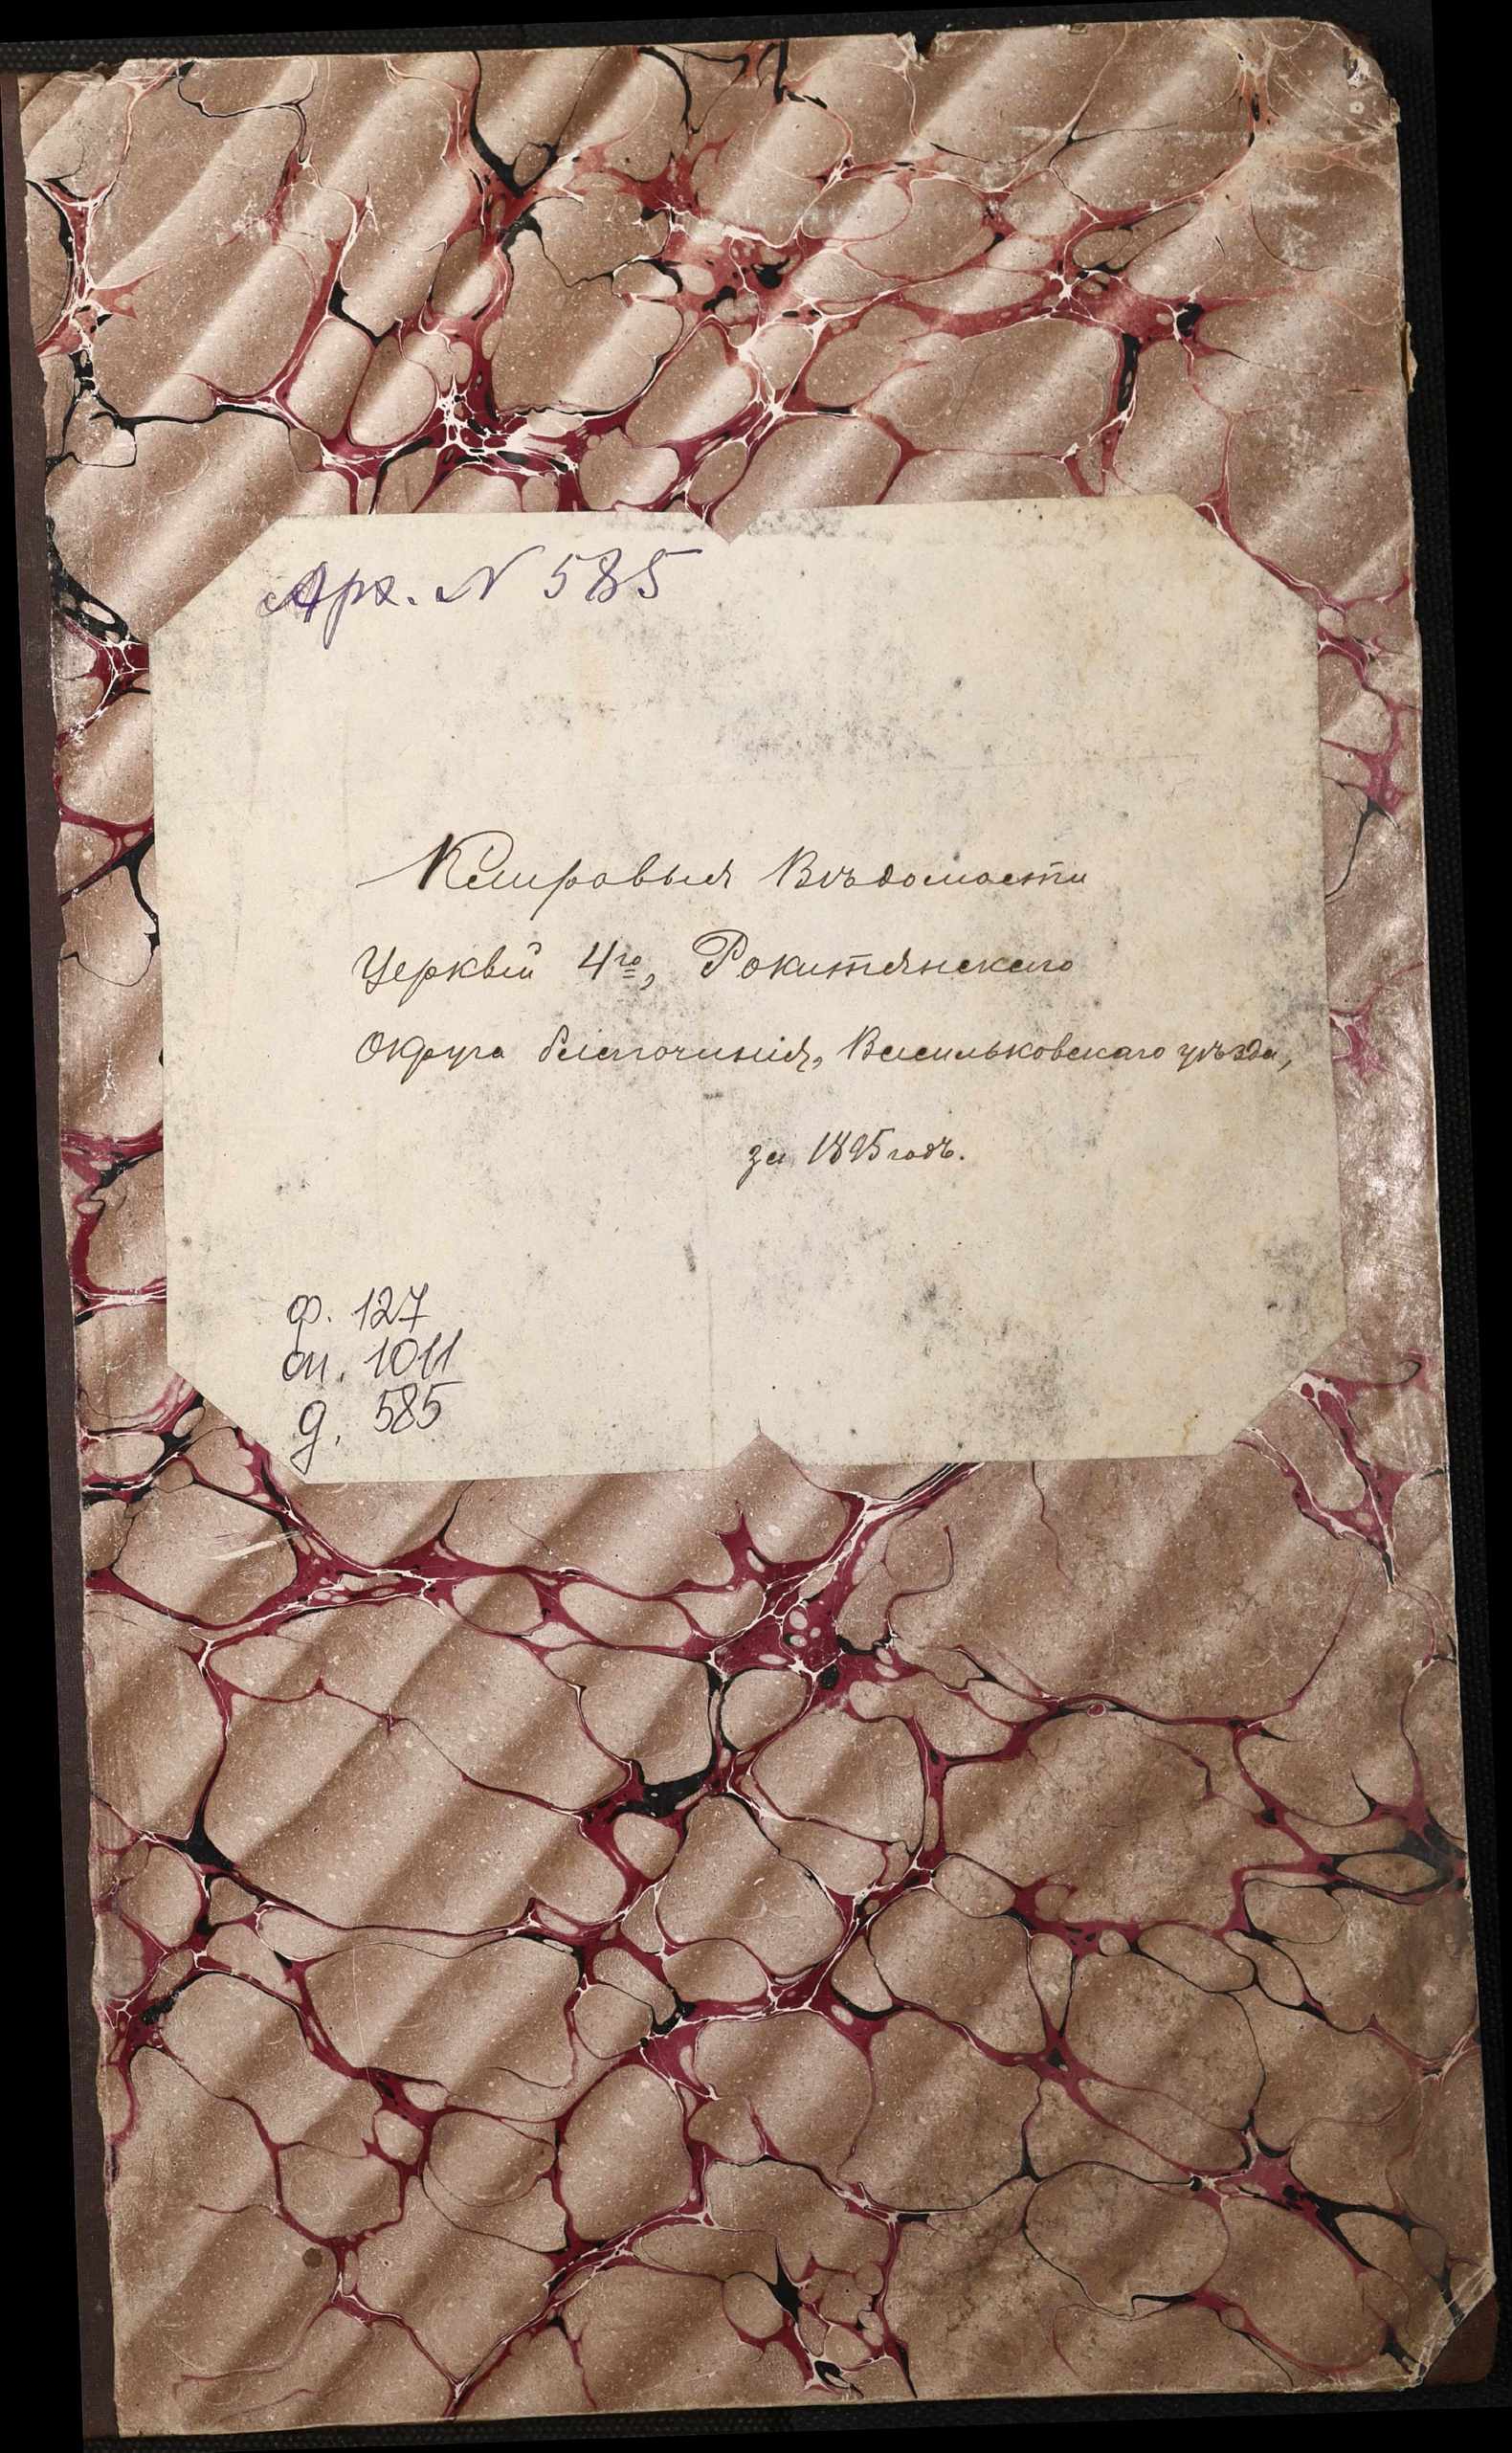 Арх. N 585
Клировыя Вѣдомости
Церквей 4го, Рокитянскаго
Округа благочинія, Васильковскаго уѣзда,
за 1895 годъ.
ф. 127
оп. 1011
д. 585